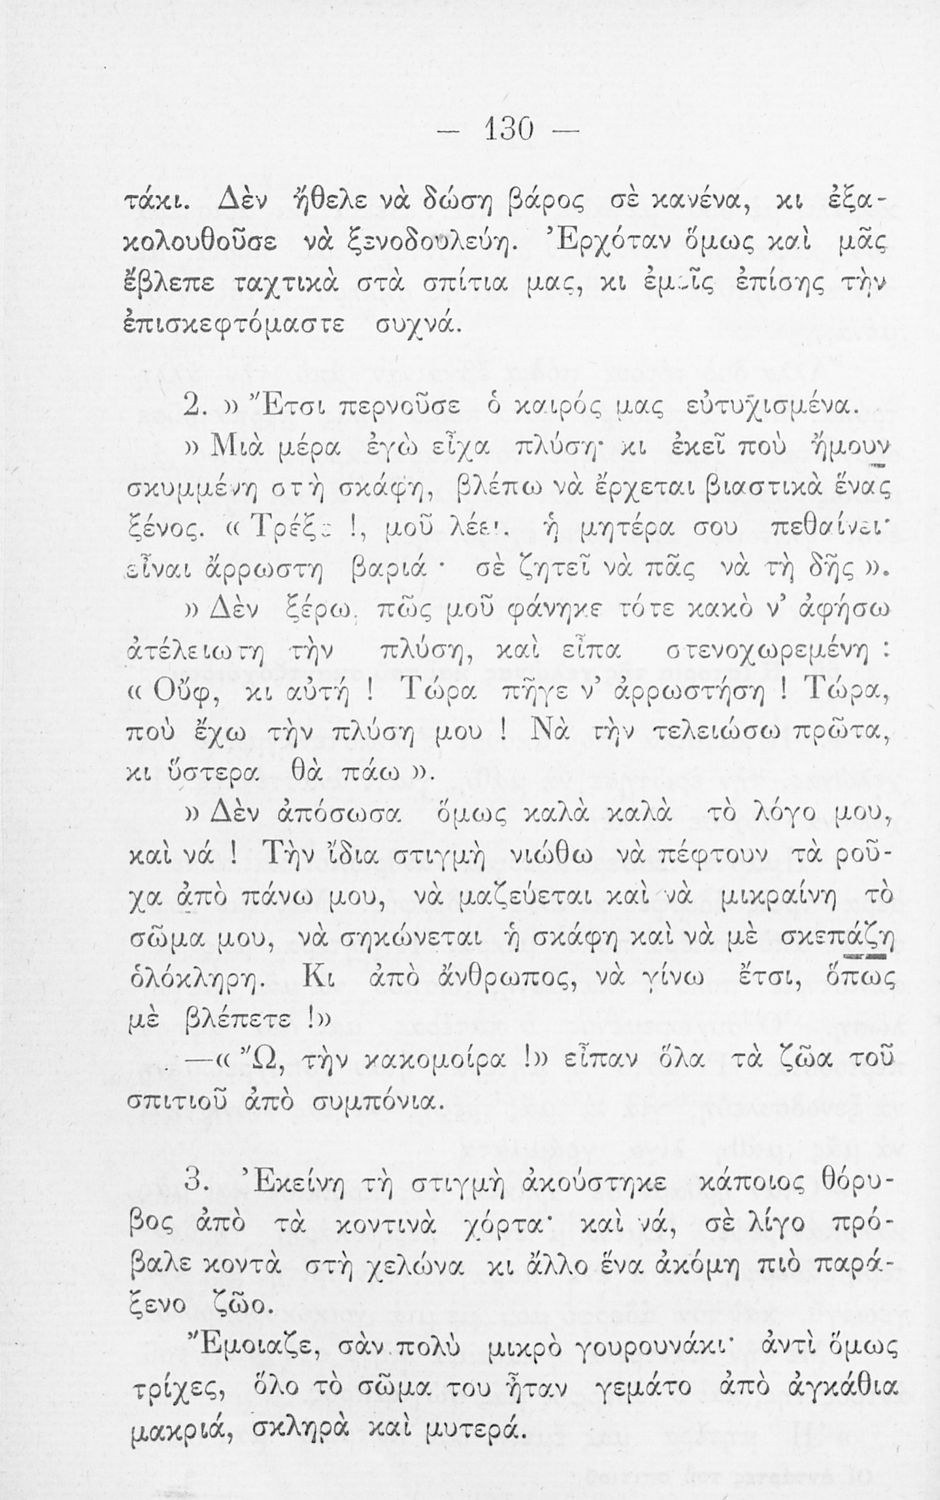 — 130 —
τάκι. Δὲν ἤθελε νὰ δώσῃ βάρος σὲ κανένα, κι ἐξα-
κολουθοῦσε νὰ ξενοδουλεύῃ. Ἐρχόταν ὅμως καὶ μᾶς
ἔβλεπε ταχτικὰ στὰ σπίτια μας, κι ἐμεῖς ἐπίσης τὴν
ἐπισκεφτόμαστε συχνά.
2. » Ἔτσι περνοῦσε ὁ καιρός μας εὐτυχισμένα.
» Μιὰ μέρα ἐγὼ εἶχα πλύση· κι ἐκεῖ ποὺ ἤμουν
σκυμμένη στὴ σκάφη, βλέπω νὰ ἔρχεται βιαστικὰ ἕνας
ξένος. « Τρέξε !, μοῦ λέει. ἡ μητέρα σου πεθαίνει·
εἶναι ἄρρωστη βαριά · σὲ ζητεῖ νὰ πᾶς νὰ τὴ δῇς ».
» Δὲν ξέρω, πῶς μοῦ φάνηκε τότε κακὸ ν’ ἀφήσω
ἀτέλειωτη τὴν πλύση, καὶ εἶπα στενοχωρεμένη :
« Οὔφ, κι αὐτή ! Τώρα πῆγε ν’ ἀρρωστήσῃ ! Τώρα,
ποὺ ἔχω τὴν πλύση μου ! Νὰ τὴν τελειώσω πρῶτα,
κι ὕστερα θὰ πάω ».
» Δὲν ἀπόσωσα ὅμως καλὰ καλὰ τὸ λόγο μου,
καὶ νά ! Τὴν ἴδια στιγμὴ νιώθω νὰ πέφτουν τὰ ροῦ-
χα ἀπὸ πάνω μου, νὰ μαζεύεται καὶ νὰ μικραίνη τὸ
σῶμα μου, νὰ σηκώνεται ἡ σκάφη καὶ νὰ μὲ σκεπάζη
ὁλόκληρη. Κι ἀπὸ ἄνθρωπος, νὰ γίνω ἔτσι, ὅπως
μὲ βλέπετε !»
—« Ὤ, τὴν κακομοίρα !» εἶπαν ὅλα τὰ ζῶα τοῦ
σπιτιοῦ ἀπὸ συμπόνια.
3. Ἐκείνη τὴ στιγμὴ ἀκούστηκε κάποιος θόρυ-
βος ἀπὸ τὰ κοντινὰ χόρτα· καὶ νά, σὲ λίγο πρό-
βαλε κοντὰ στὴ χελώνα κι ἄλλο ἕνα ἀκόμη πιὸ παρά-
ξενο ζῶο.
Ἔμοιαζε, σὰν πολὺ μικρὸ γουρουνάκι· ἀντὶ ὅμως
τρίχες, ὅλο τὸ σῶμα του ἦταν γεμάτο ἀπὸ ἀγκάθια
μακριά, σκληρὰ καὶ μυτερά.